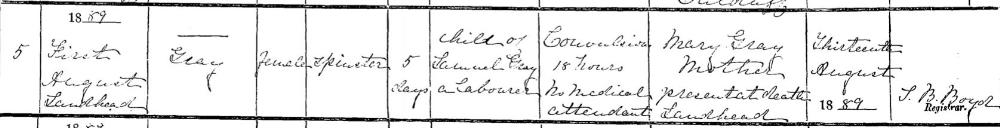 1889
5
First
August
Landhead
Gray
Female
Spinster
5
days
child of
Samuel Gray
a Labourer
Convulsions
18 hours
No medical
attendant
Mary Gray
Mother
present at death
Landhead
Thirteenth
August
1889
S. B. Boyd
Registrar.